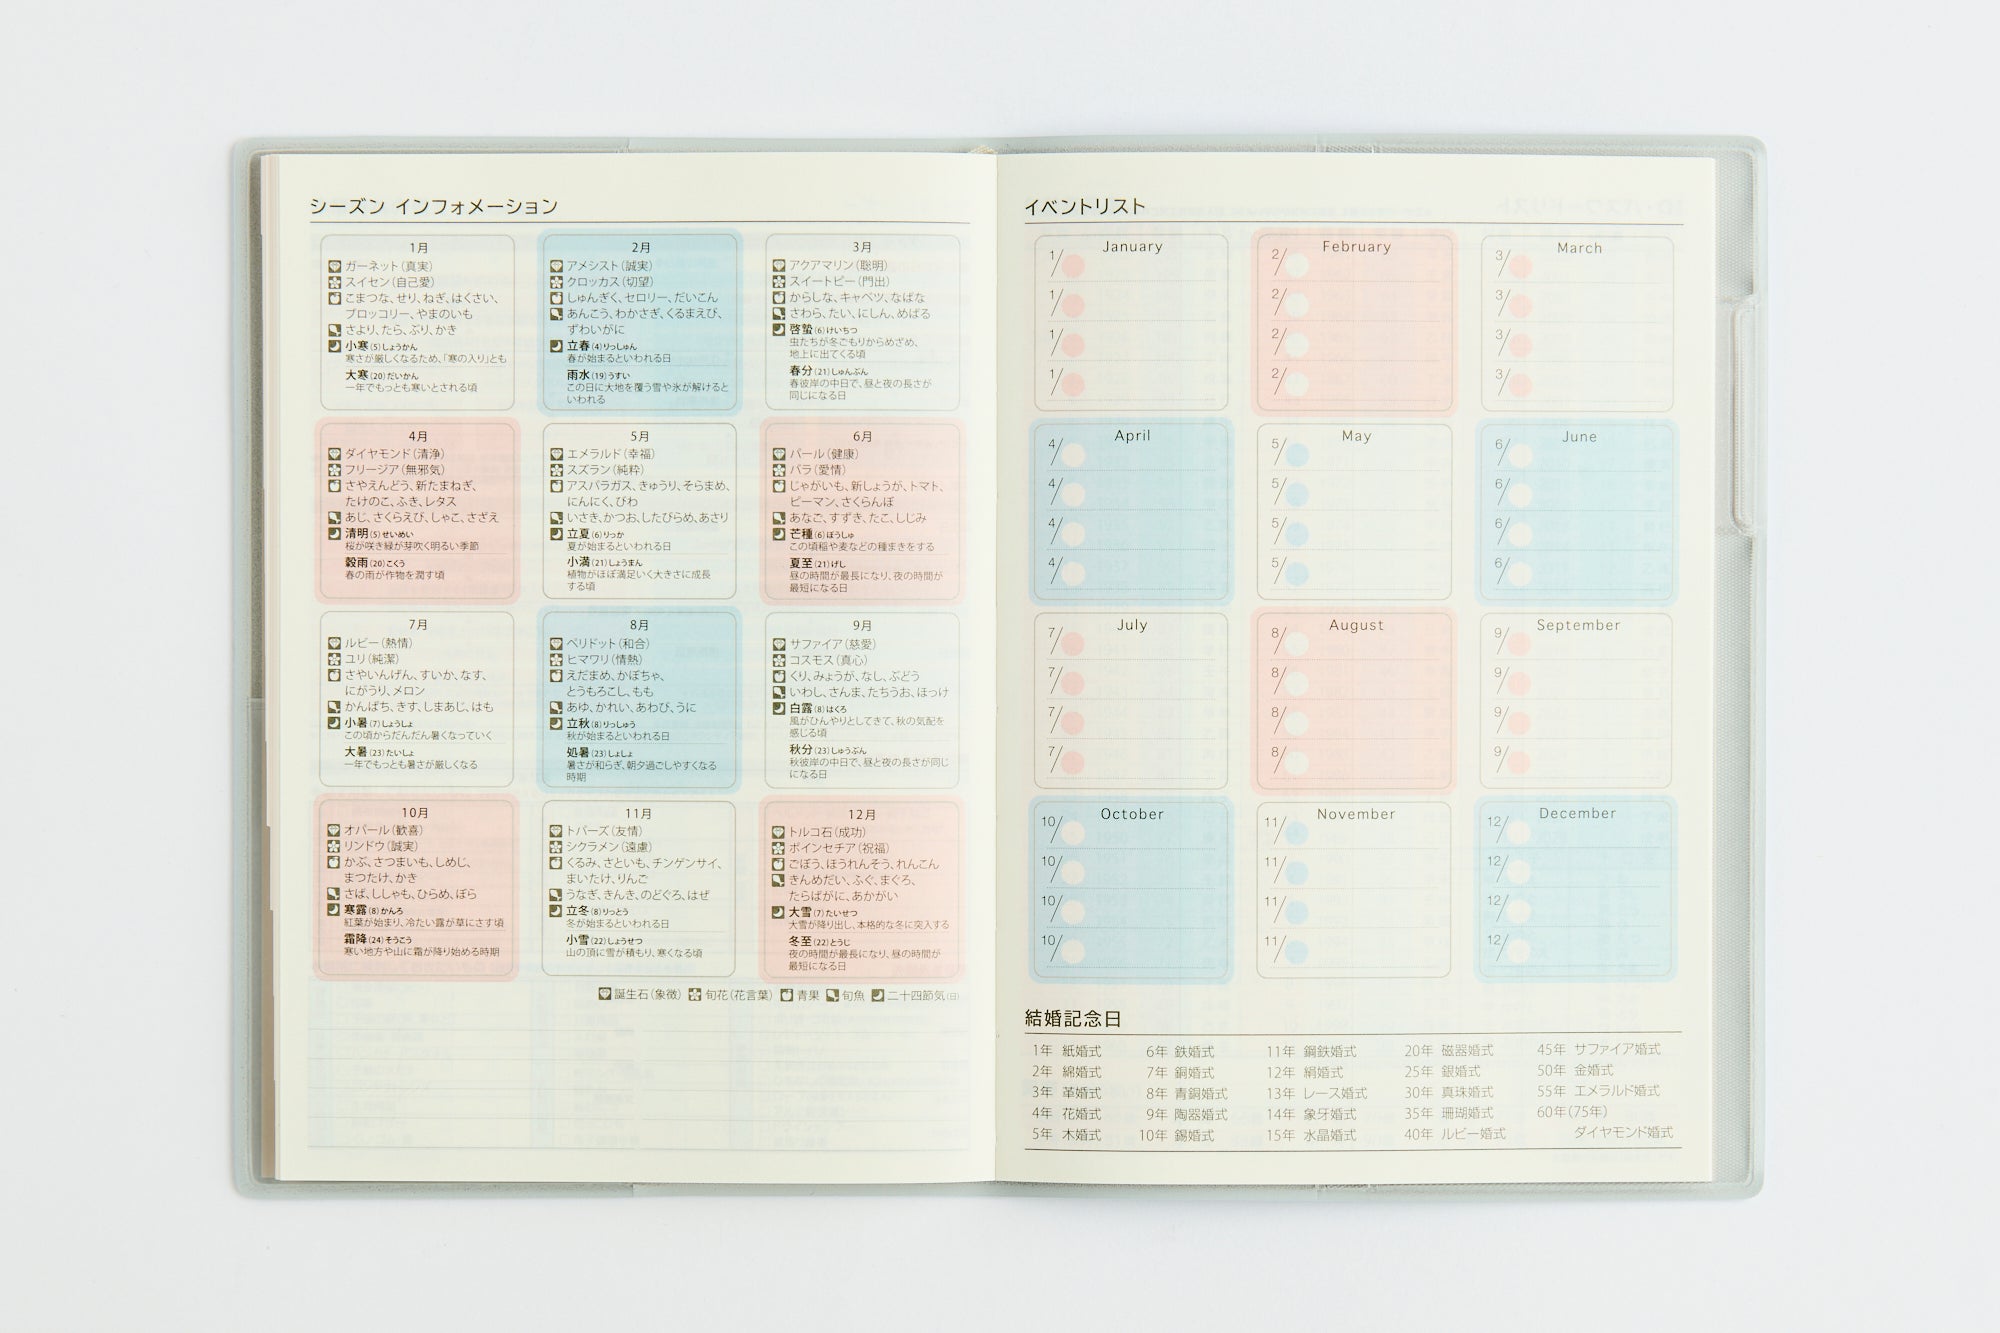 シーズン インフォメーション
1月
ガーネット(真実)
スイセン(自己愛)
こまつな、せり、ねぎ、はくさい、
ブロッコリー、やまのいも
さより、たら、ぶり、かき
小寒(5)しょうかん
寒さが厳しくなるため、「寒の入り」とも
大寒(20)だいかん
一年でもっとも寒いとされる頃
2月
アメシスト(誠実)
クロッカス(切望)
しゅんぎく、セロリー、だいこん
あんこう、わかさぎ、くるまえび、
ずわいがに
立春(4)りっしゅん
春が始まるといわれる日
雨水(19)うすい
この日に大地を覆う雪や氷が解けると
いわれる
3月
アクアマリン(聡明)
スイートピー(門出)
からしな、キャベツ、なばな
さわら、たい、にしん、めばる
啓蟄(6)けいちつ
虫たちが冬ごもりからめざめ、
地上に出てくる頃
春分(21)しゅんぶん
春彼岸の中日で、昼と夜の長さが
同じになる日
4月
ダイヤモンド(清浄)
フリージア(無邪気)
さやえんどう、新たまねぎ、
たけのこ、ふき、レタス
あじ、さくらえび、しゃこ、さざえ
清明(5)せいめい
桜が咲き緑が芽吹く明るい季節
穀雨(20)こくう
春の雨が作物を潤す頃
5月
エメラルド(幸福)
スズラン(純粋)
アスパラガス、きゅうり、そらまめ、
にんにく、びわ
いさき、かつお、したびらめ、あさり
立夏(6)りっか
夏が始まるといわれる日
小満(21)しょうまん
植物がほぼ満足いく大きさに成長
する頃
6月
パール(健康)
バラ(愛情)
じゃがいも、新しょうが、トマト、
ピーマン、さくらんぼ
あなご、すずき、たこ、しじみ
芒種(6)ぼうしゅ
この頃稲や麦などの種まきをする
夏至(21)げし
昼の時間が最長になり、夜の時間が
最短になる日
7月
ルビー(熱情)
ユリ(純潔)
さやいんげん、すいか、なす、
にがうり、メロン
かんぱち、きす、しまあじ、はも
小暑(7)しょうしょ
この頃からだんだん暑くなっていく
大暑(23)たいしょ
一年でもっとも暑さが厳しくなる
8月
ペリドット(和合)
ヒマワリ(情熱)
えだまめ、かぼちゃ、
とうもろこし、もも
あゆ、かれい、あわび、うに
立秋(8)りっしゅう
秋が始まるといわれる日
処暑(23)しょしょ
暑さが和らぎ、朝夕過ごしやすくなる
時期
9月
サファイア(慈愛)
コスモス(真心)
くり、みょうが、なし、ぶどう
いわし、さんま、たちうお、ほっけ
白露(8)はくろ
風がひんやりとしてきて、秋の気配を
感じる頃
秋分(23)しゅうぶん
秋彼岸の中日で、昼と夜の長さが同じ
になる日
10月
オパール(歓喜)
リンドウ(誠実)
かぶ、さつまいも、しめじ、
まつたけ、かき
さば、ししゃも、ひらめ、ぼら
寒露(8)かんろ
紅葉が始まり、冷たい露が草にさす頃
霜降(24)そうこう
寒い地方や山に霜が降り始める時期
11月
トパーズ(友情)
シクラメン(遠慮)
くるみ、さといも、チンゲンサイ、
まいたけ、りんご
うなぎ、きんき、のどぐろ、はぜ
立冬(8)りっとう
冬が始まるといわれる日
小雪(22)しょうせつ
山の頂に雪が積もり、寒くなる頃
12月
トルコ石(成功)
ポインセチア(祝福)
ごぼう、ほうれんそう、れんこん
きんめだい、ふぐ、まぐろ、
たらばがに、あかがい
大雪(7)たいせつ
大雪が降り出し、本格的な冬に突入する
冬至(22)とうじ
夜の時間が最長になり、昼の時間が
最短になる日
誕生石(象徴) 旬花(花言葉) 青果 旬魚 二十四節気(日)
イベントリスト
January
1/
1/
1/
1/
February
2/
2/
2/
2/
March
3/
3/
3/
3/
April
4/
4/
4/
4/
May
5/
5/
5/
5/
June
6/
6/
6/
6/
July
7/
7/
7/
7/
August
8/
8/
8/
8/
September
9/
9/
9/
9/
October
10/
10/
10/
10/
November
11/
11/
11/
11/
December
12/
12/
12/
12/
結婚記念日
1年 紙婚式
2年 綿婚式
3年 革婚式
4年 花婚式
5年 木婚式
6年 鉄婚式
7年 銅婚式
8年 青銅婚式
9年 陶器婚式
10年 錫婚式
11年 鋼鉄婚式
12年 絹婚式
13年 レース婚式
14年 象牙婚式
15年 水晶婚式
20年 磁器婚式
25年 銀婚式
30年 真珠婚式
35年 珊瑚婚式
40年 ルビー婚式
45年 サファイア婚式
50年 金婚式
55年 エメラルド婚式
60年(75年)
ダイヤモンド婚式